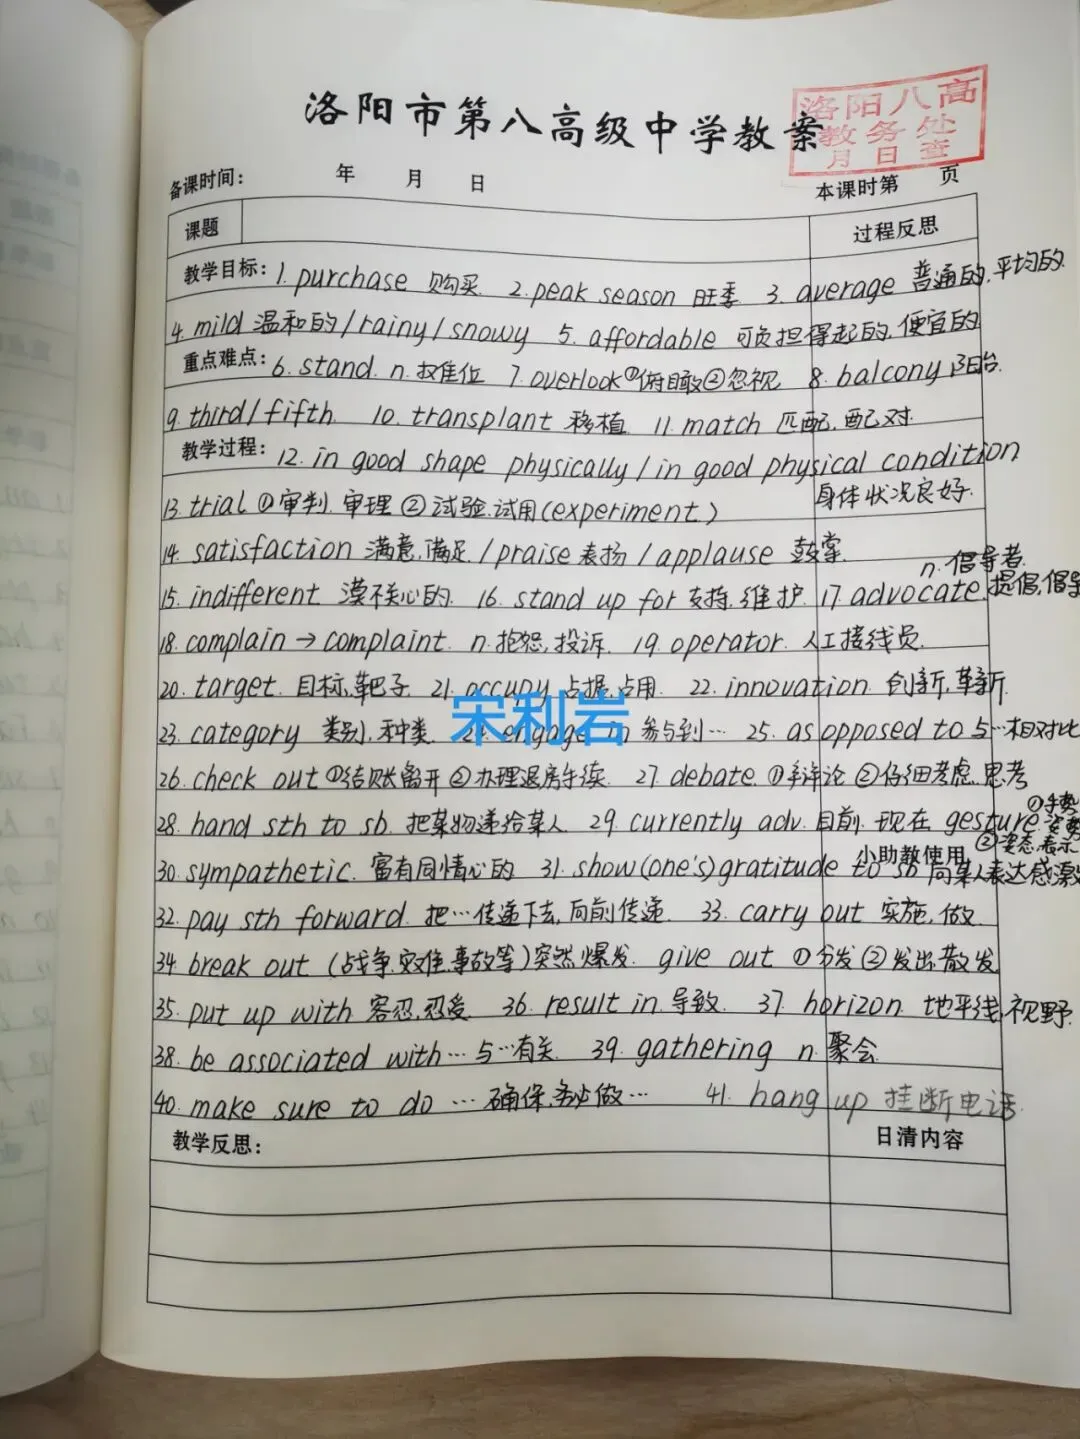 洛阳市第八高级中学教案
洛阳八高
教务处
月日查
备课时间: 年 月 日
本课时第 页
课题
过程反思
教学目标: 1. purchase 购买 2. peak season 旺季 3. average 普通的,平均的
4. mild 温和的/rainy/snowy 5. affordable 可负担得起的,便宜的
重点难点: 6. stand. n. 摊位 7. overlook ①俯瞰②忽视 8. balcony 阳台.
9. third/fifth 10. transplant 移植 11. match 匹配,配对
教学过程: 12. in good shape physically / in good physical condition
身体状况良好.
13. trial ①审判.审理 ②试验.试用(experiment)
14. satisfaction 满意,满足/praise 表扬/applause 鼓掌
n. 倡导者.
15. indifferent 漠不关心的. 16. stand up for 支持.维护. 17 advocate.提倡,倡导
18. complain → complaint. n. 抱怨,投诉. 19. operator. 人工接线员.
20. target. 目标,靶子. 21. occupy 占据,占用. 22. innovation 创新,革新
23. category 类别,种类. 24. engage in 参与到… 25. as opposed to 与…相对比
宋利岩
26. check out ①结账离开 ②办理退房手续. 27. debate. ①辩论 ②仔细考虑.思考
28. hand sth to sb. 把某物递给某人 29. currently adv. 目前.现在 gesture.
①手势
②姿态.表示
小助教使用
30. sympathetic. 富有同情心的 31. show(one's) gratitude to sb 向某人表达感激
32. pay sth forward 把…传递下去,向前传递. 33. carry out 实施,做.
34. break out (战争,灾难,事故等)突然爆发. give out ①分发 ②发出.散发
35. put up with 容忍.忍受 36. result in. 导致. 37. horizon. 地平线,视野.
38. be associated with… 与…有关. 39. gathering n. 聚会.
40. make sure to do … 确保,务必做… 41. hang up 挂断电话.
教学反思:
日清内容